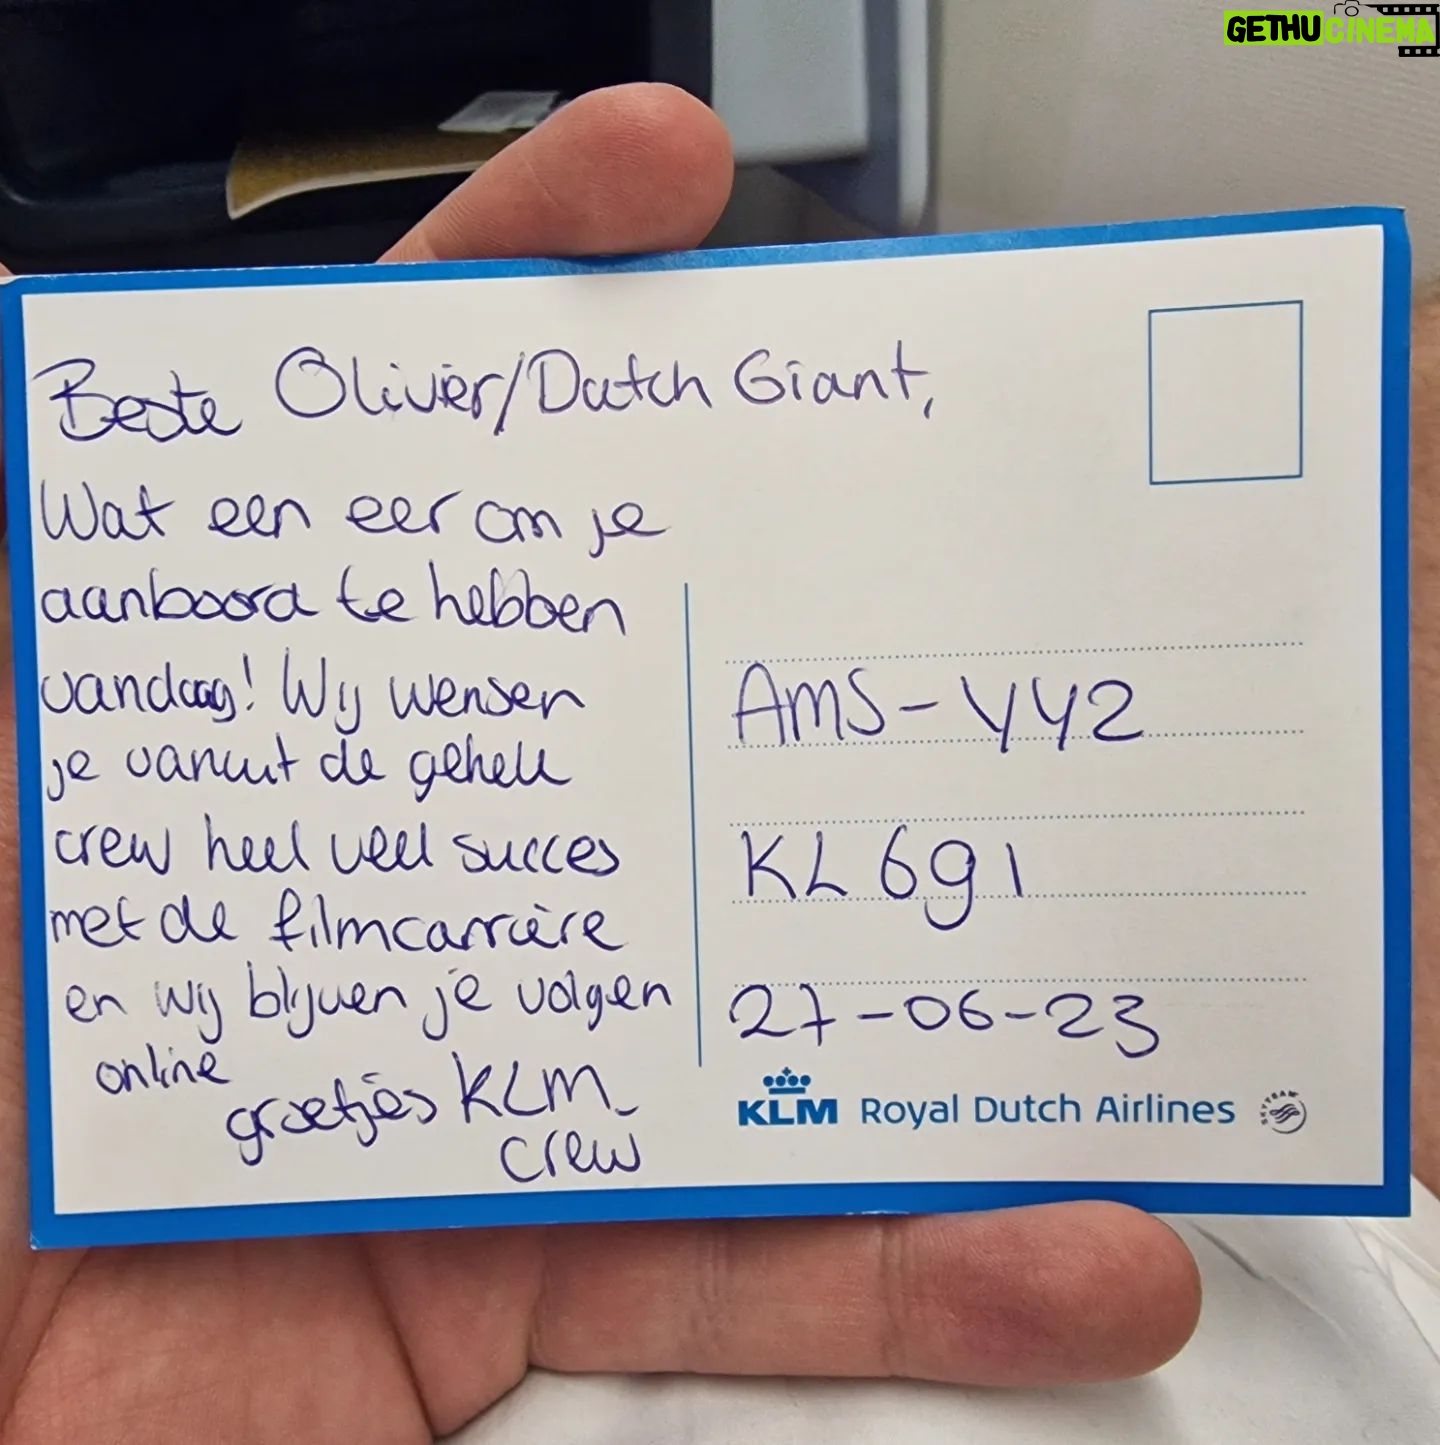 GETHUCINEMA
Beste Olivier/Dutch Giant,
Wat een eer om je
aanboord te hebben
vandaag! Wij wensen
je vanuit de gehele
crew heel veel succes
met de filmcarrière
en wij blijven je volgen
online
groetjes KLM
crew
AMS-YYZ
KL691
27-06-23
KLM Royal Dutch Airlines
SKYTEAM